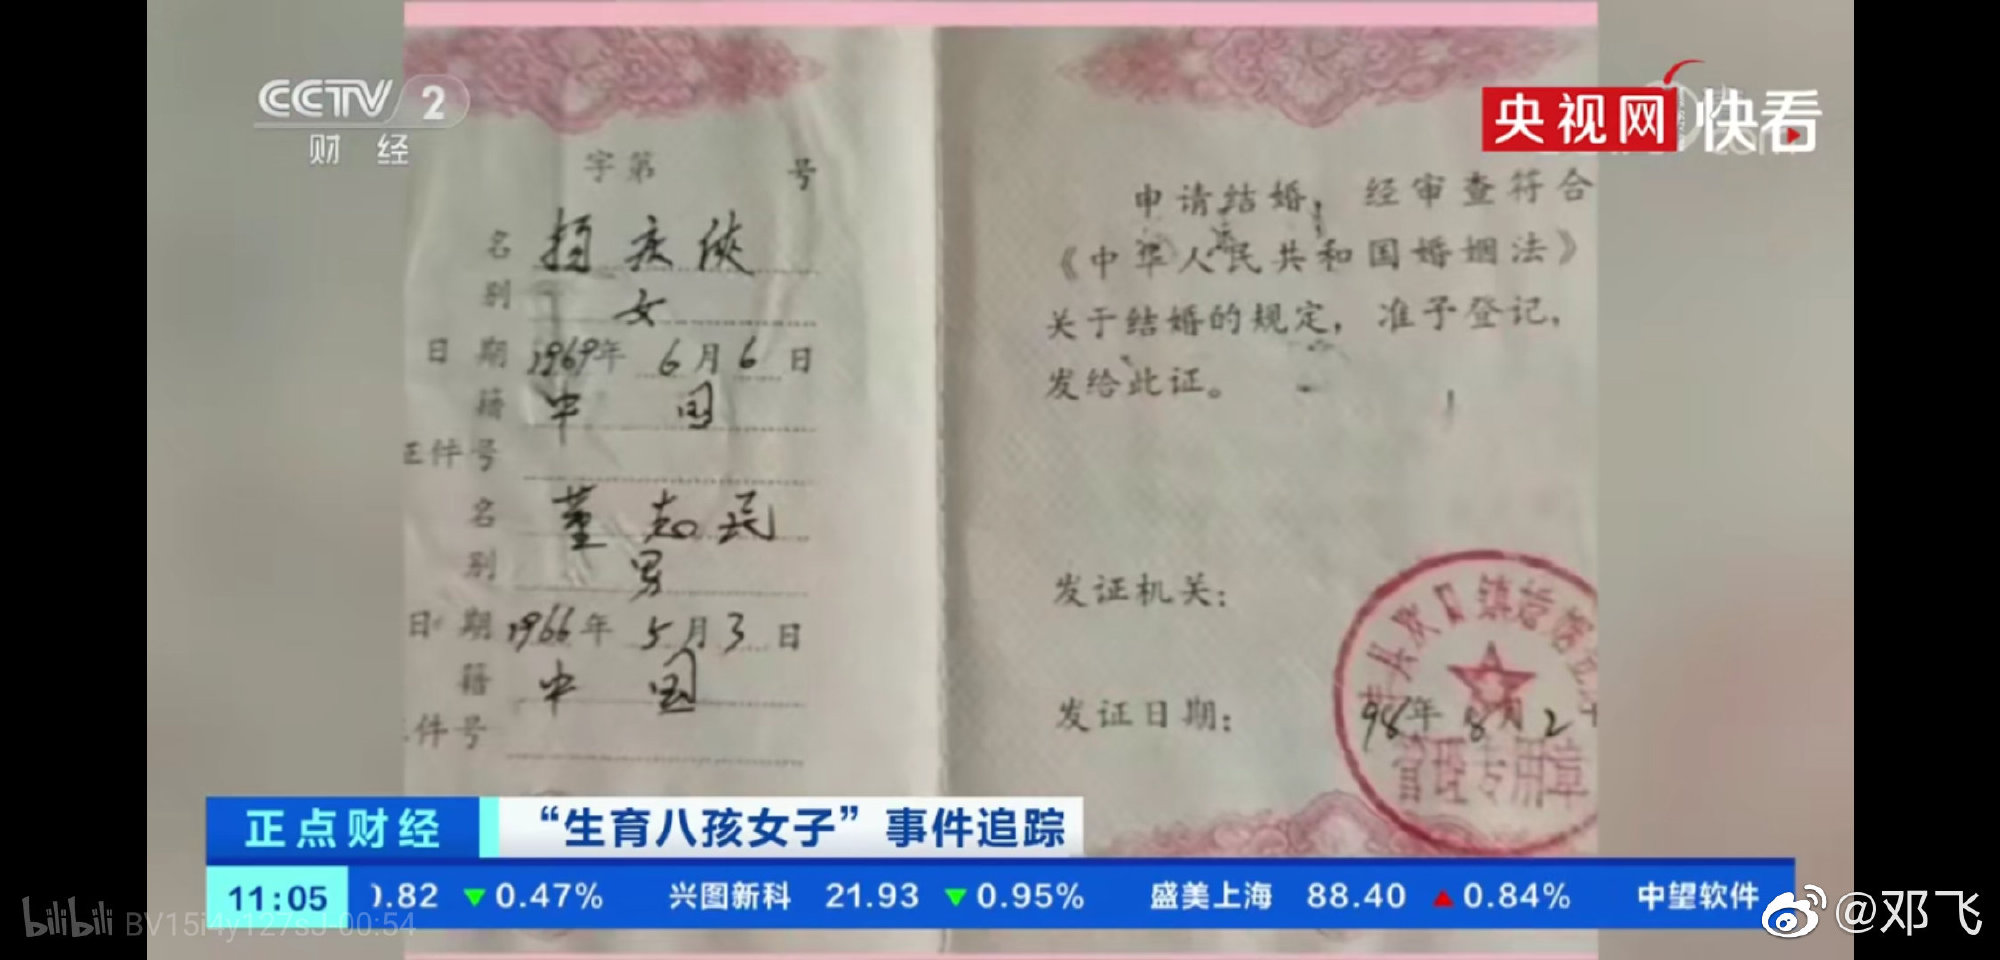 CCTV 2
财经
央视网 快看
字第 号
名 杨庆侠
别 女
日期 1969年 6月 6日
籍 中国
证件号
名 董志民
别 男
日期 1966年 5月 3日
籍 中国
件号
申请结婚，经审查符合
《中华人民共和国婚姻法》
关于结婚的规定，准予登记，
发给此证。
发证机关：
镇婚姻
发证日期： 98年 8月 2
管理专用章
正点财经 “生育八孩女子”事件追踪
11:05 0.82 ▼0.47% 兴图新科 21.93 ▼0.95% 盛美上海 88.40 ▲0.84% 中望软件
bilibili BV15i4y127sJ 00:54
@邓飞